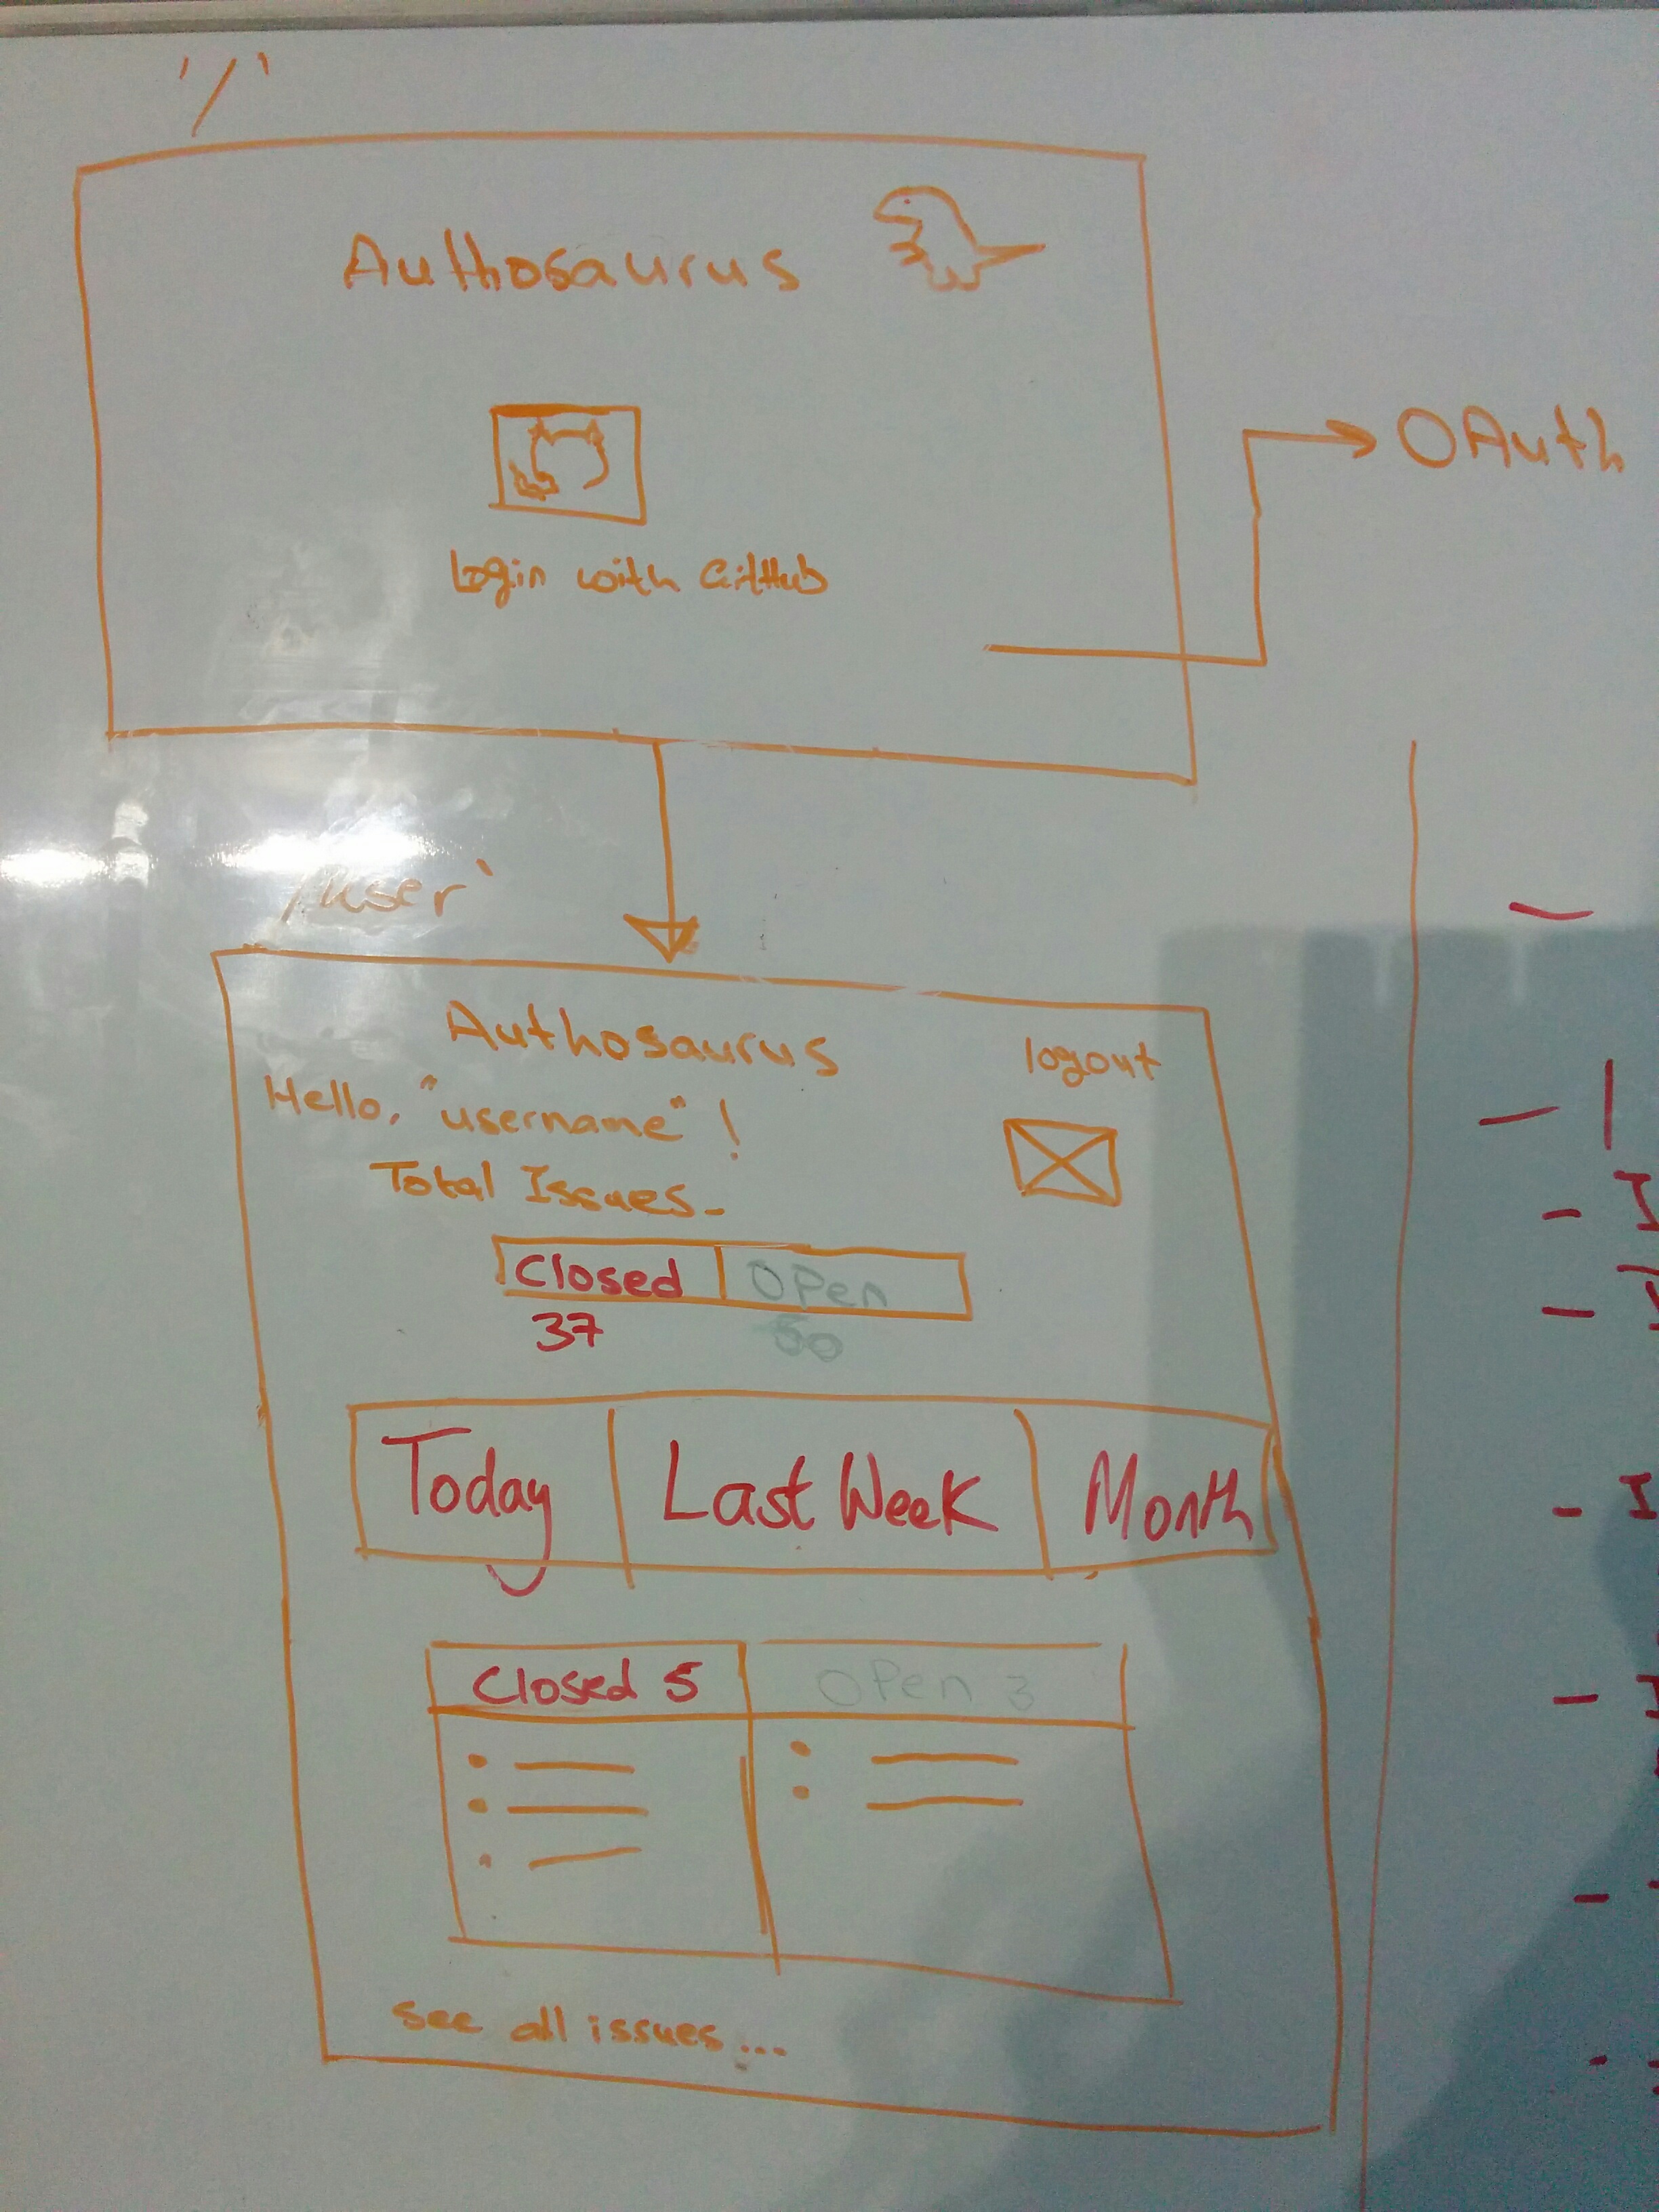 '/'
Authosaurus
OAuth
Login with GitHub
/user'
Authosaurus
logout
Hello, "username" !
Total Issues-
Closed Open
37 50
Today Last Week Month
Closed 5 Open 3
see all issues...